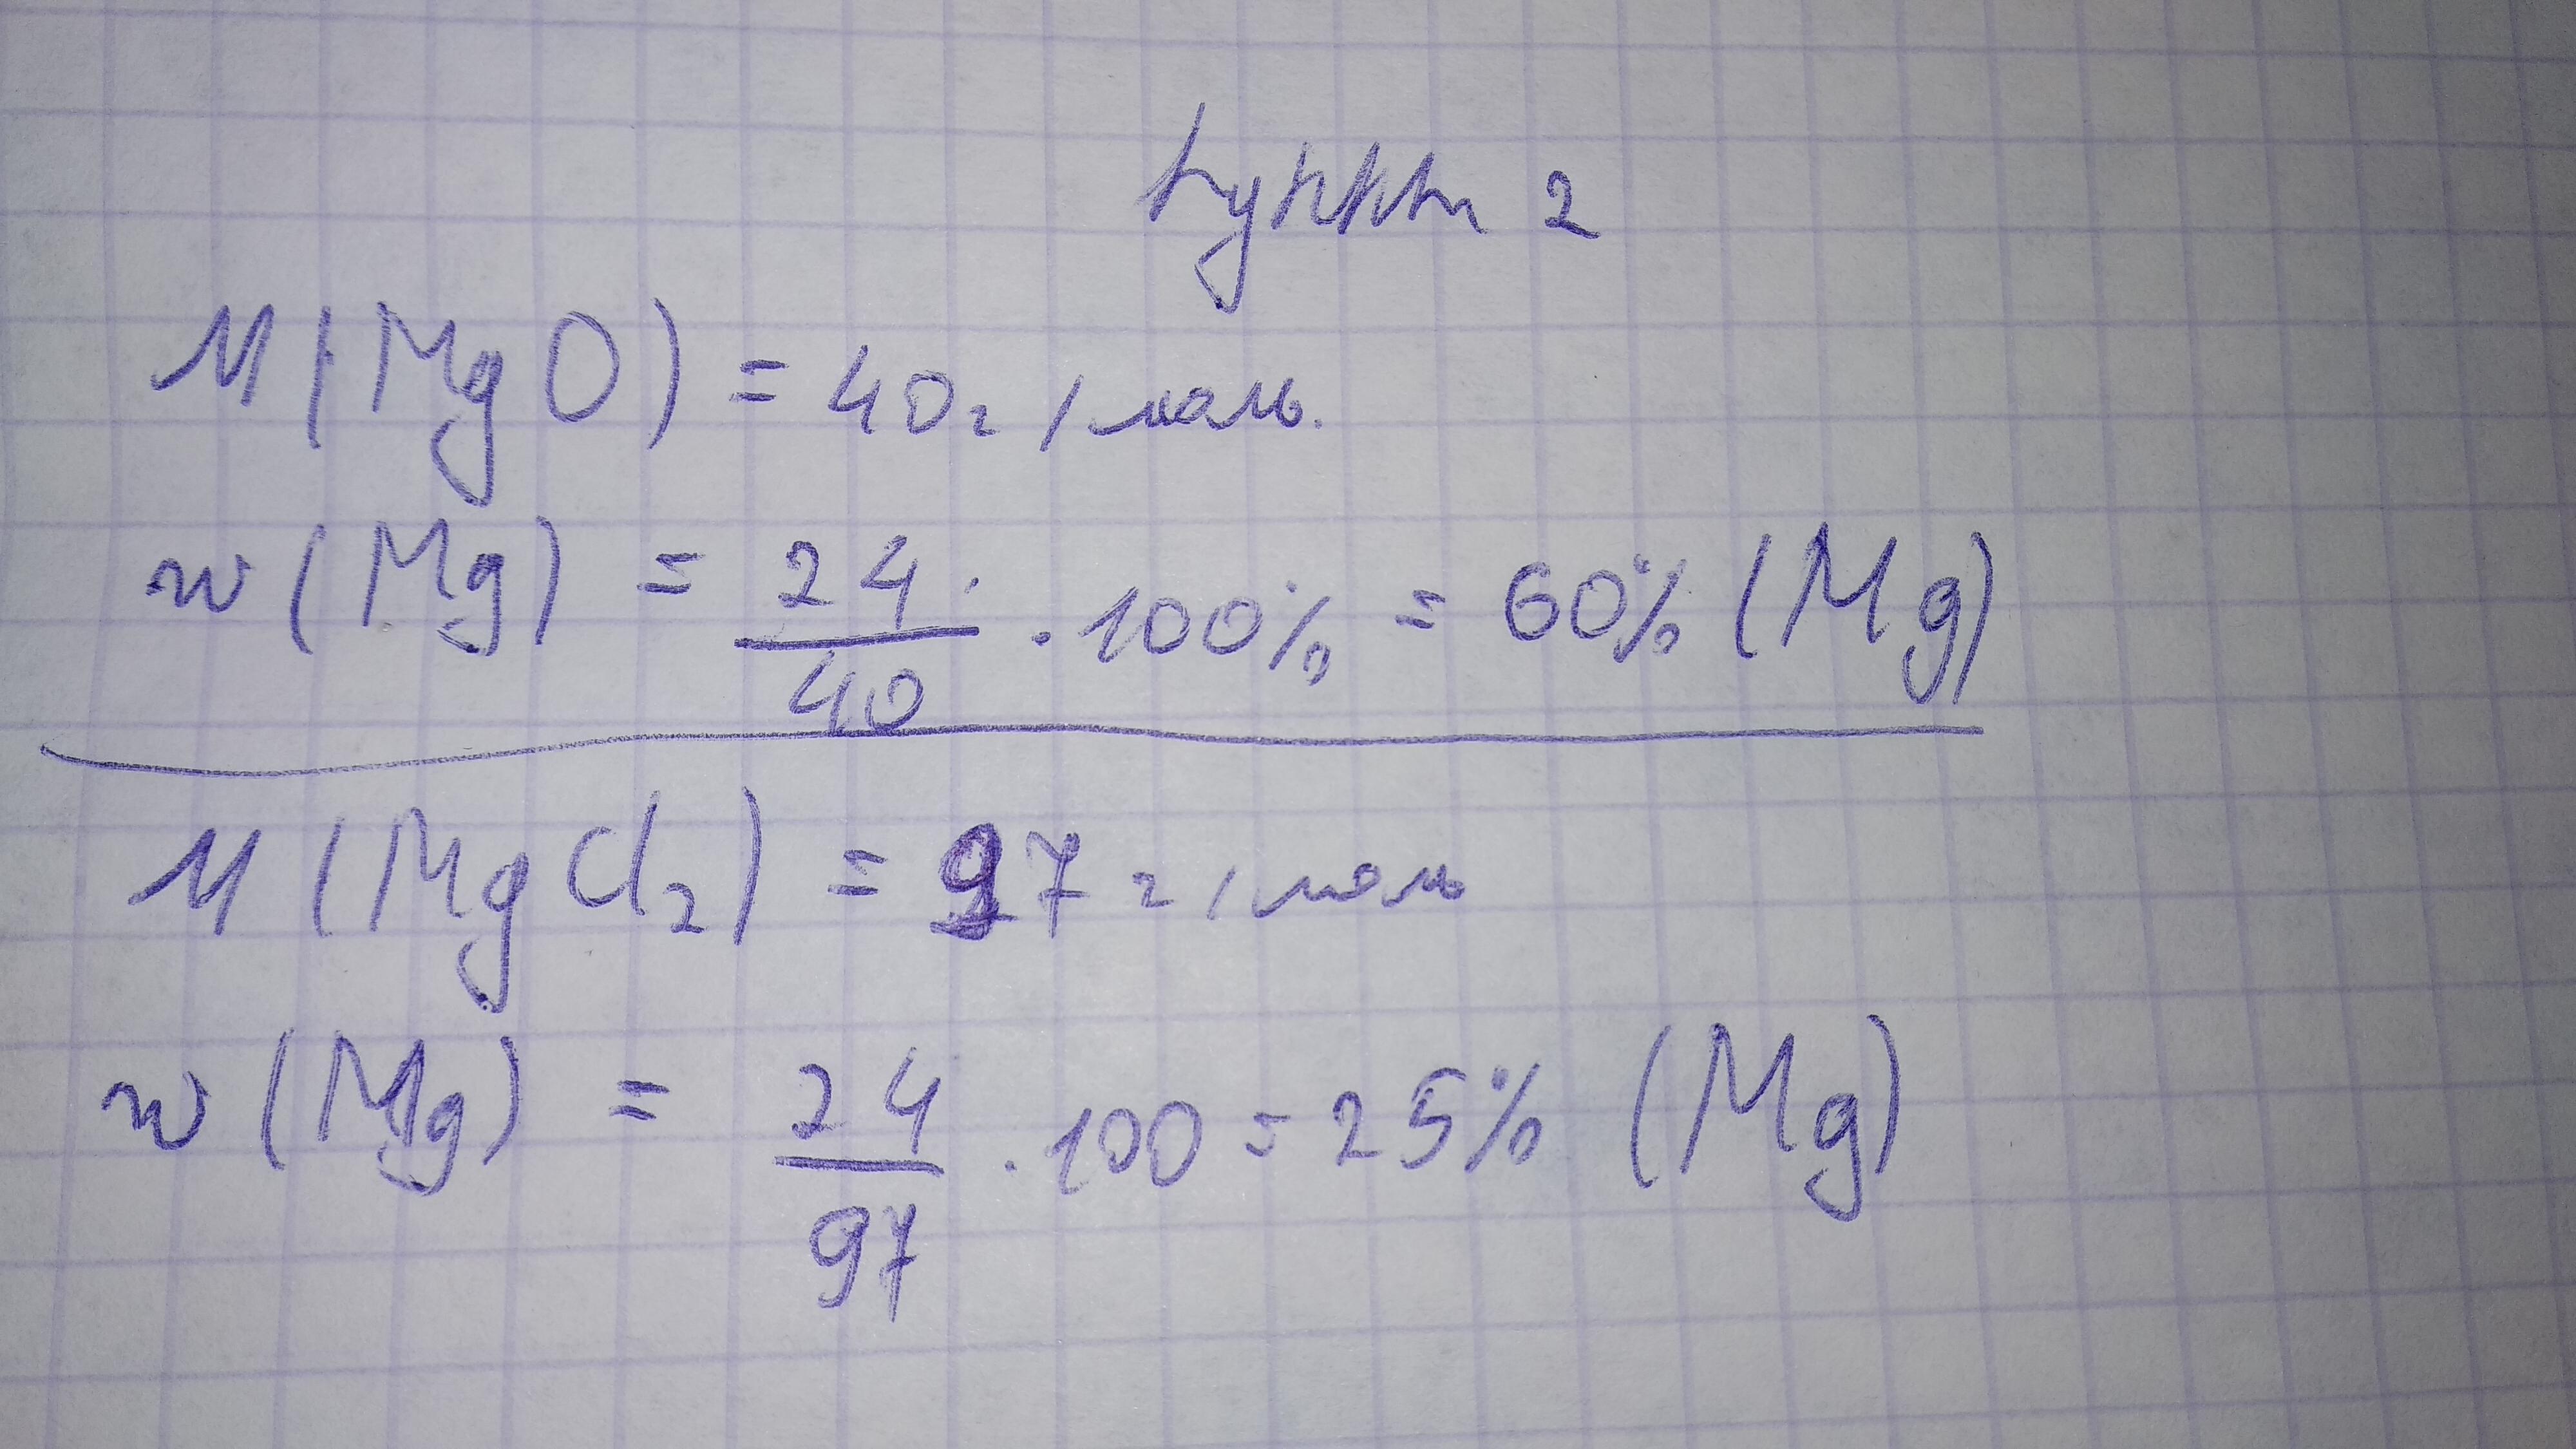 пункт 2
M(MgO) = 40г/моль.
w(Mg) = 24/40 · 100% = 60% (Mg)
M(MgCl₂) = 97 г/моль
w(Mg) = 24/97 · 100 = 25% (Mg)